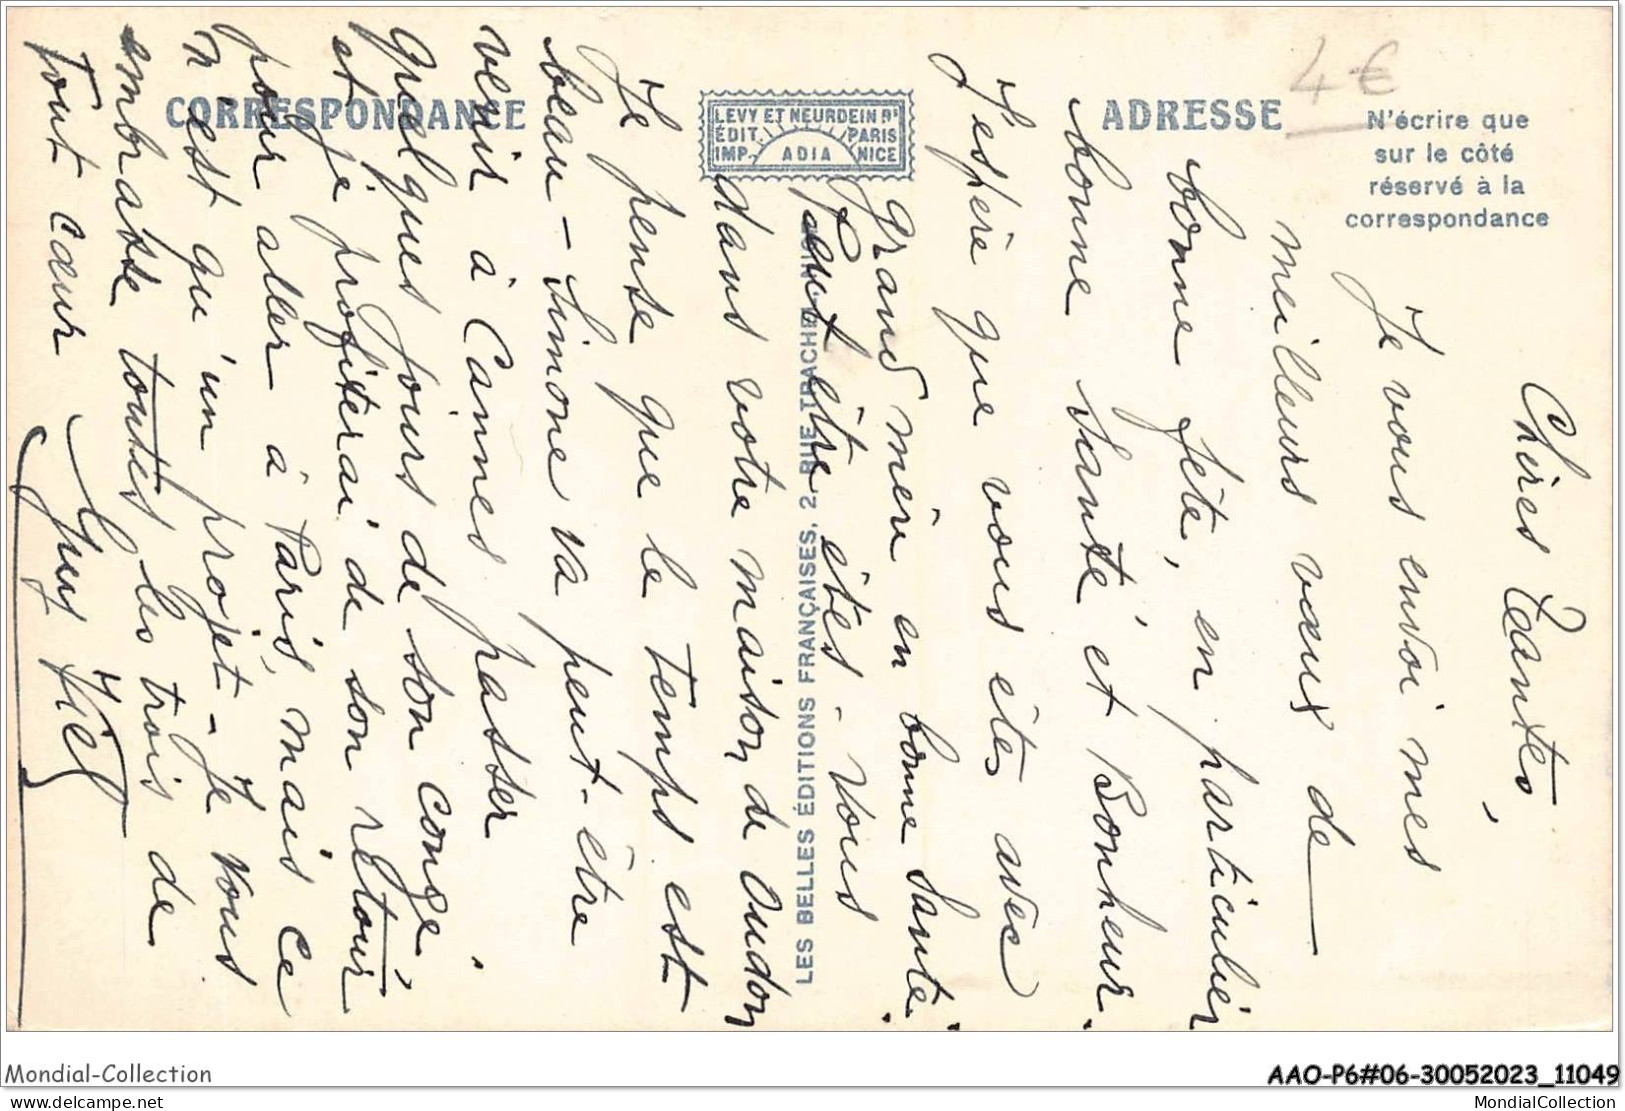 CORRESPONDANCE
LEVY ET NEURDEIN Rs
ÉDIT. PARIS
IMP. ADIA NICE
ADRESSE
4€
N'écrire que
sur le côté
réservé à la
correspondance
LES BELLES ÉDITIONS FRANÇAISES, 2, RUE TRACHEL
Chères Tantes,
Je vous envoi mes
meilleurs vœux de
bonne fête, en particulier
bonne santé et Bonheur.
J'espère que vous êtes avec
grand mère en bonne santé.
Peut être êtes-vous
dans votre maison de Oudon
Je pense que le temps est
beau - Simone va peut-être
venir à Cannes passer
quelques jours de son congé.
et je profiterai de son retour
pour aller à Paris, mais ce
n'est qu'un projet - Je vous
embrasse toutes les trois de
tout cœur
Mondial-Collection
AAO-P6#06-30052023_11049
www.delcampe.net
MondialCollection